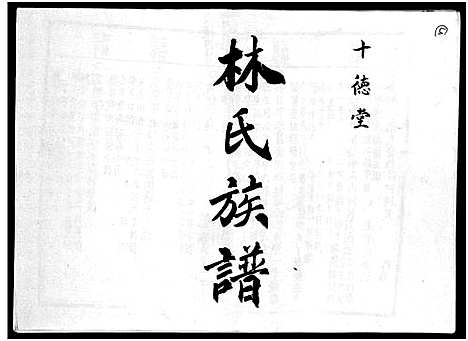 十德堂
林氏族譜